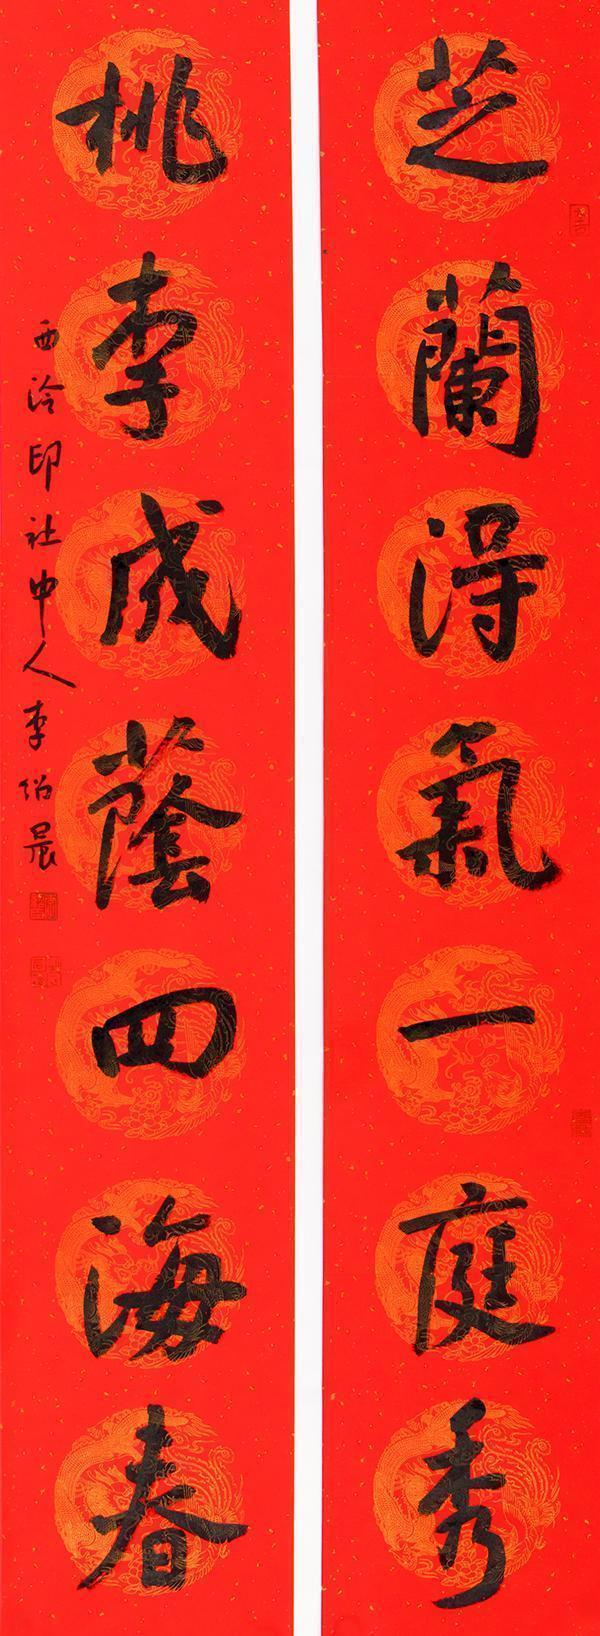 芝蘭得氣一庭秀
桃李成蔭四海春
西泠印社中人李紹晨